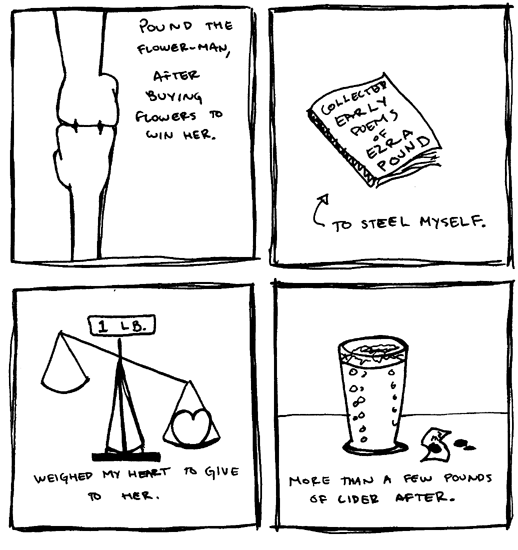 POUND THE
FLOWER-MAN,
AFTER
BUYING
FLOWERS TO
WIN HER.
COLLECTED
EARLY
POEMS
OF
EZRA
POUND
TO STEEL MYSELF.
1 LB.
WEIGHED MY HEART TO GIVE
TO HER.
MORE THAN A FEW POUNDS
OF CIDER AFTER.